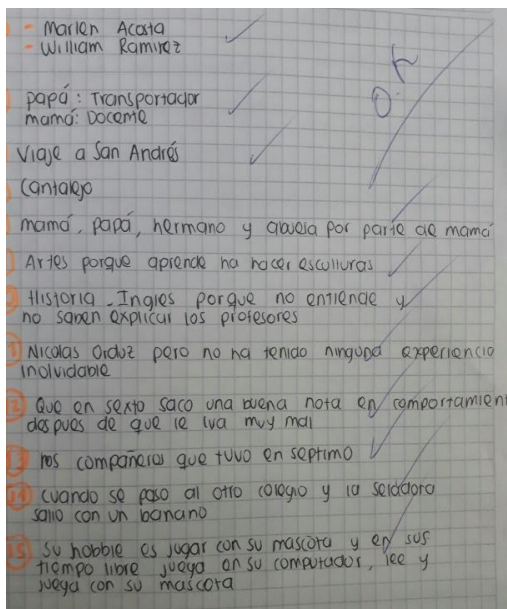 - Marlen Acosta
- William Ramirez
papá: Transportador
mamá: Docente
Viaje a San Andrés
Cantalejo
mamá, papá, hermano y abuela por parte de mamá
Artes porque aprende ha hacer esculturas
Historia - Ingles porque no entiende y
no saben explicar los profesores
11 Nicolas Orduz pero no ha tenido ninguna experiencia
inolvidable
12 Que en sexto saco una buena nota en comportamien
despues de que le iva muy mal
13 los compañeros que tuvo en septimo
14 cuando se paso al otro colegio y la
salio con un banano
15 Su hobbie es jugar con su mascota y en sus
tiempo libre juega en su computador, lee y
juega con su mascota